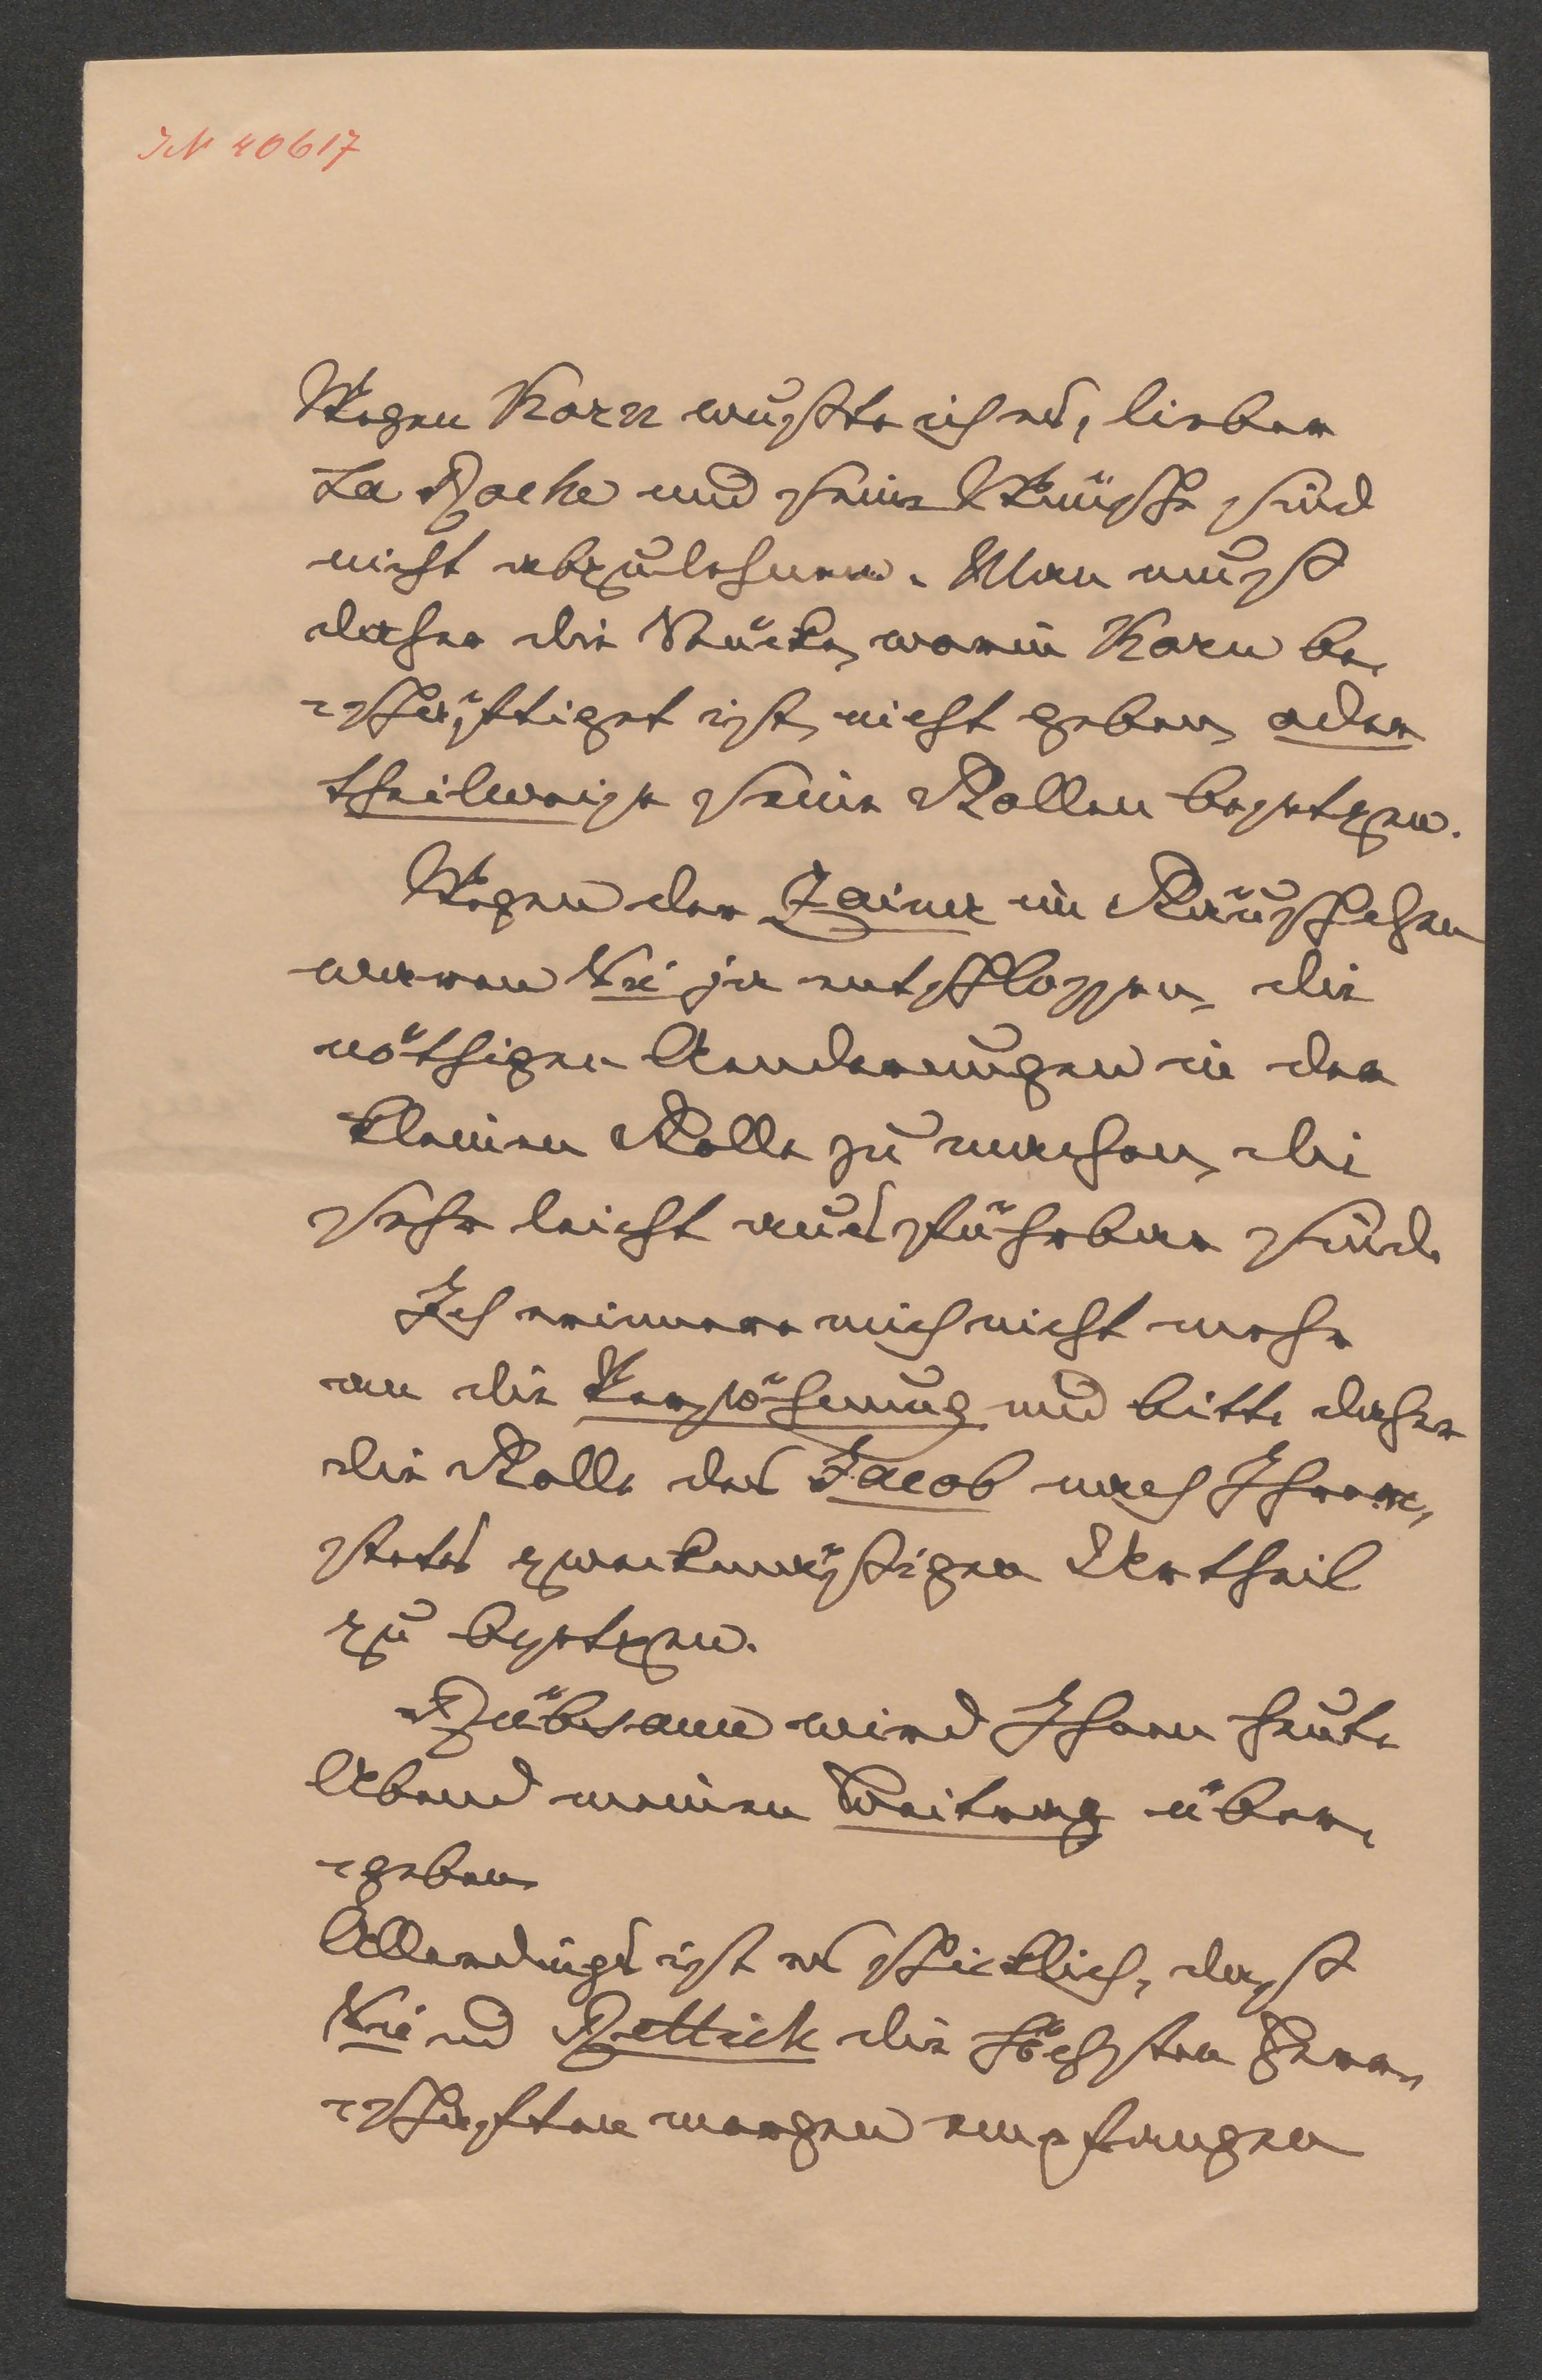 IN 40617
Wegen Korn wußte ich es, lieber
La Roche und seine Wünsche sind
nicht abzulehnen. Man muß
daher die Stücke, worin Korn be-
schäftiget ist, nicht geben, oder
theilweise seine Rollen besetzen.
Wegen der Zeiner im Räuschchen
waren Sie ja entschlossen, die
nöthigen Aenderungen in der
kleinen Rolle zu machen, die
sehr leicht ausführbar sind.
Ich erinnere mich nicht mehr
an die Versöhnung und bitte daher
die Rolle des Jacob nach Ihrem,
stets zweckmäßigen Urtheil
zu besetzen.
Rübsam wird Ihnen heute
Abend meinen Beitrag über-
geben.
Allerdings ist es schicklich, daß
Sie und Rettich die höchsten Herr-
schaften morgen empfangen